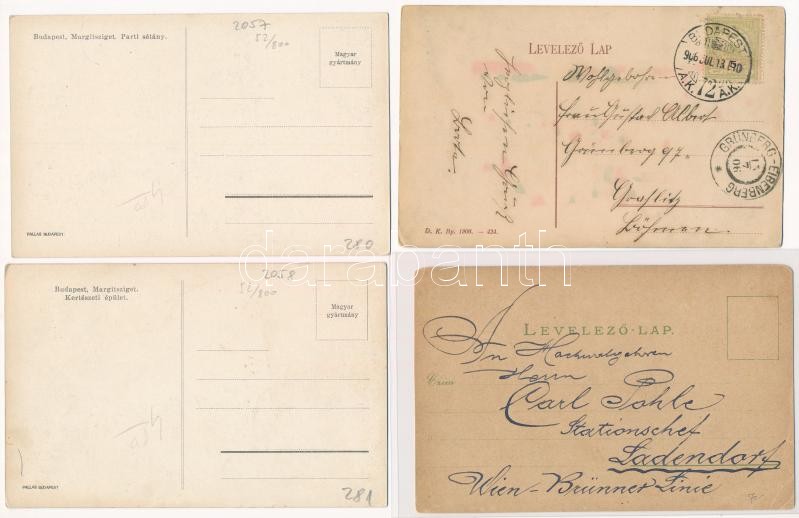 Budapest, Margitsziget. Parti sétány.
2057
52/800
Magyar
gyártmány
PALLAS BUDAPEST
280
LEVELEZŐ LAP
BUDAPEST
906 JUL 13
A.K. 72 A.K.
GRÜNBERG-EIBENBERG
Wohlgeboren
Frau Gustav Albert
Grünberg 97.
Graslitz
Böhmen.
D. K. Bp. 1906. — 424.
darabanth
Budapest, Margitsziget.
Kertészeti épület.
2058
52/800
Magyar
gyártmány
PALLAS BUDAPEST
281
LEVELEZŐ-LAP.
Czim
An Hochwolgeboren
Herrn
Carl Pohle
Stationschef
Ladendorf
Wien-Brünner Linie